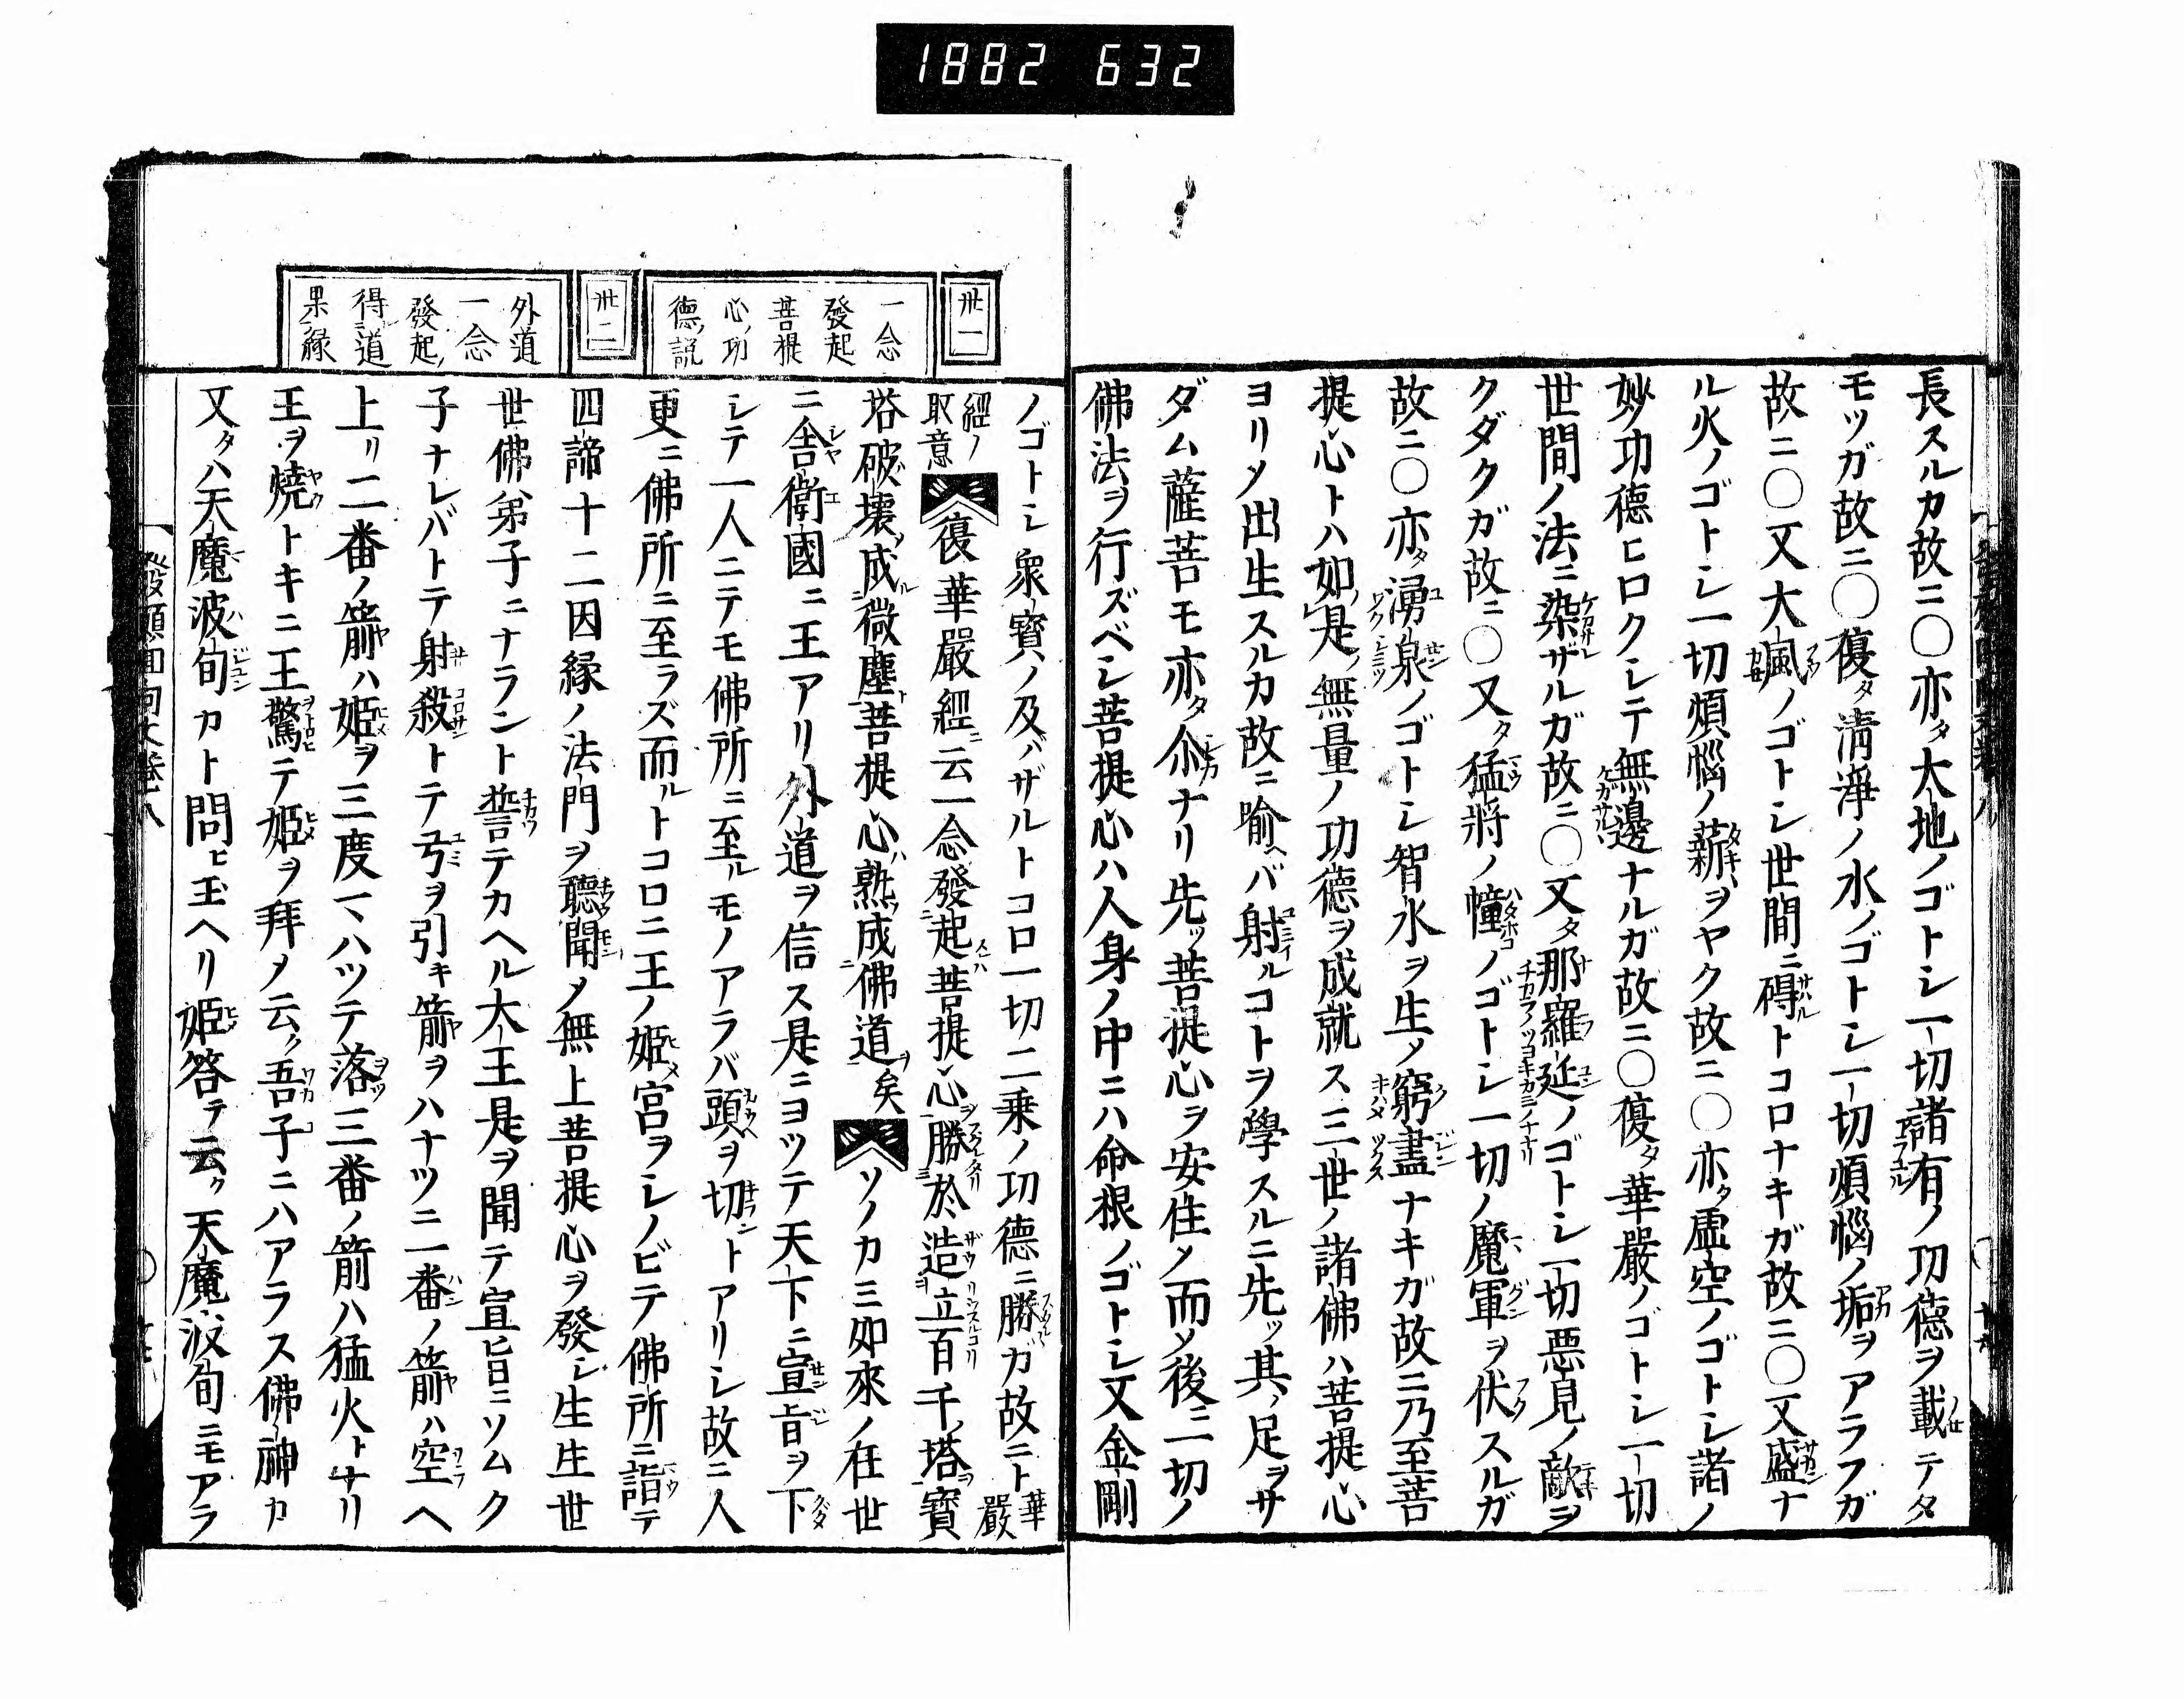 1882 632
長スルカ故ニ〇亦タ大地ノゴトシ一切諸有ノ功德ヲ載テタ
モツガ故ニ〇復タ淸淨ノ水ノゴトシ一切煩惱ノ垢ヲアラフガ
故ニ〇又大颯ノゴトシ世間ニ碍トコロナキガ故ニ〇又盛ナ
ル火ノゴトシ一切煩惱ノ薪ヲヤク故ニ〇亦タ虛空ノゴトシ諸ノ
妙功德ヒロクシテ無邊ナルガ故ニ〇復タ華嚴ノゴトシ一切
世間ノ法ニ染ザルガ故ニ〇又タ那羅延ノゴトシ一切惡見ノ敵ヲ
クダクガ故ニ〇又タ猛將ノ幢ノゴトシ一切ノ魔軍ヲ伏スルガ
故ニ〇亦タ湧泉ノゴトシ智水ヲ生ノ窮盡ナキガ故ニ乃至菩
提心トハ如是ノ無量ノ功德ヲ成就ス三世ノ諸佛ハ菩提心
ヨリメ出生スルカ故ニ喩ヘバ射ルコトヲ學スルニ先ッ其ノ足ヲサ
ダム薩菩モ亦タ尒ナリ先ッ菩提心ヲ安住メ而メ後ニ一切ノ
佛法ヲ行ズベシ菩提心ハ人身ノ中ニハ命根ノゴトシ又金剛
卅一
一念
發起
菩提
心ノ功
德ノ說
卅二
外道
一念
發起ノ
得道
果緣
ノゴトシ衆寶ノ及バザルトコロ一切二乘ノ功德ニ勝ガ故ニト華嚴
經ノ取意復華嚴經ニ云一念發起菩提心勝於造立百千塔寶
塔破壞成微塵菩提心熟成佛道矣ソノカミ如來ノ在世
ニ舍衞國ニ王アリ外道ヲ信ス是ニヨツテ天下ニ宣旨ヲ下
シテ一人ニテモ佛所ニ至ルモノアラバ頭ヲ切ントアリシ故ニ人
更ニ佛所ニ至ラズ而ルトコロニ王ノ姬宮ヲシノビテ佛所ニ詣テ
四諦十二因緣ノ法門ヲ聽聞メ無上菩提心ヲ發シ生生世
世佛弟子ニナラント誓テカヘル大王是ヲ聞テ宣旨ニソムク
子ナレバトテ射殺トテ弓ヲ引キ箭ヲハナツニ一番ノ箭ハ空ヘ
上リ二番ノ箭ハ姬ヲ三度マハツテ落三番ノ箭ハ猛火トナリ
王ヲ燒トキニ王驚テ姬ヲ拜メ云ク吾子ニハアラス佛神カ
又タハ天魔波旬カト問ヒ玉ヘリ姬答テ云ク天魔波旬ニモアラ
發願回向文卷八